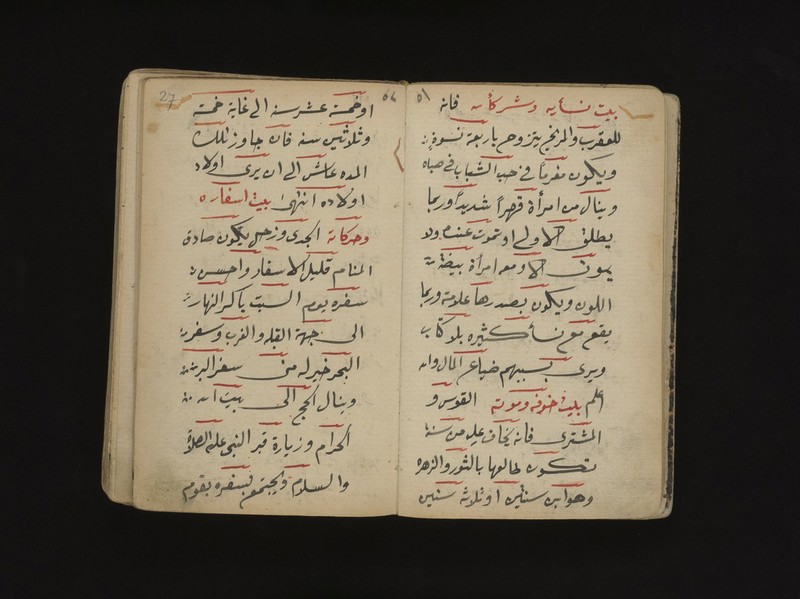 ٥١
بيت نسائه وشركائه فانه
للعقرب والمريخ يتزوج باربعة نسوة
ويكون مغرماً في حب الشباب في صباه
وينال من امرأة قهراً شديداً وربما
يطلق الاولى او تموت عنده ولا
يموت الا ومعه امرأة بيضة
اللون ويكون بصدرها علامة وربما
يقع مع نسأ كثيره بلا كتاب
ويرى بسببهم ضياع المال والله
اعلم بليت خوفه وموته القوس و
المشتري فانه يخاف عليه من سنة
تكون طالعها بالثور والزهره
وهو ابن سنتين او ثلاثة سنين
٥٢
27
او خمسة عشر سنه الى غاية خمسة
وثلاثين سنه فان جاوز تلك
المده عاش الى ان يرى اولاد
اولاده انتهى بيت اسفاره
وحركاته الجدى وزحل يكون صادق
المنام قليل الاسفار واحسن
سفره يوم السبت باكر النهار
الى جهة القبله والغرب وسفر
البحر خير له من سفر البر
وينال الحج الى بيت الله
الحرام وزيارة قبر النبي عليه الصلاة
والسلام ويجتمع بسفره بقوم